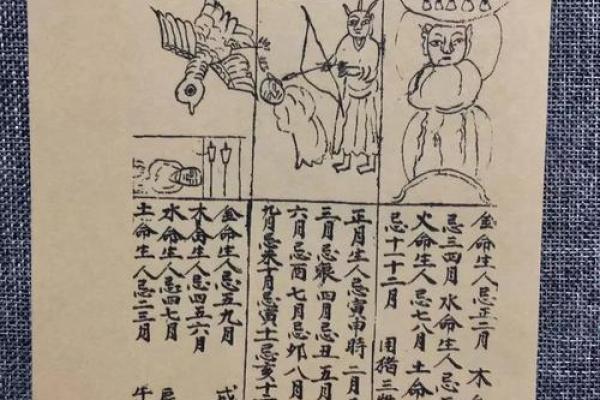 金命生人忌正二月 木
忌三四月 水命生人忌
火命生人忌七八月 土命
忌十一十二月 用猪三牲
正月生人忌寅申時 二月
三月忌 四月忌丑 五月
六月忌酉 七月忌卯 八月
九月忌未十月忌寅十一忌亥十
金命生人忌五九月
木命生人忌四五六月
水命生人忌四七月 忌
土命生人忌二三月